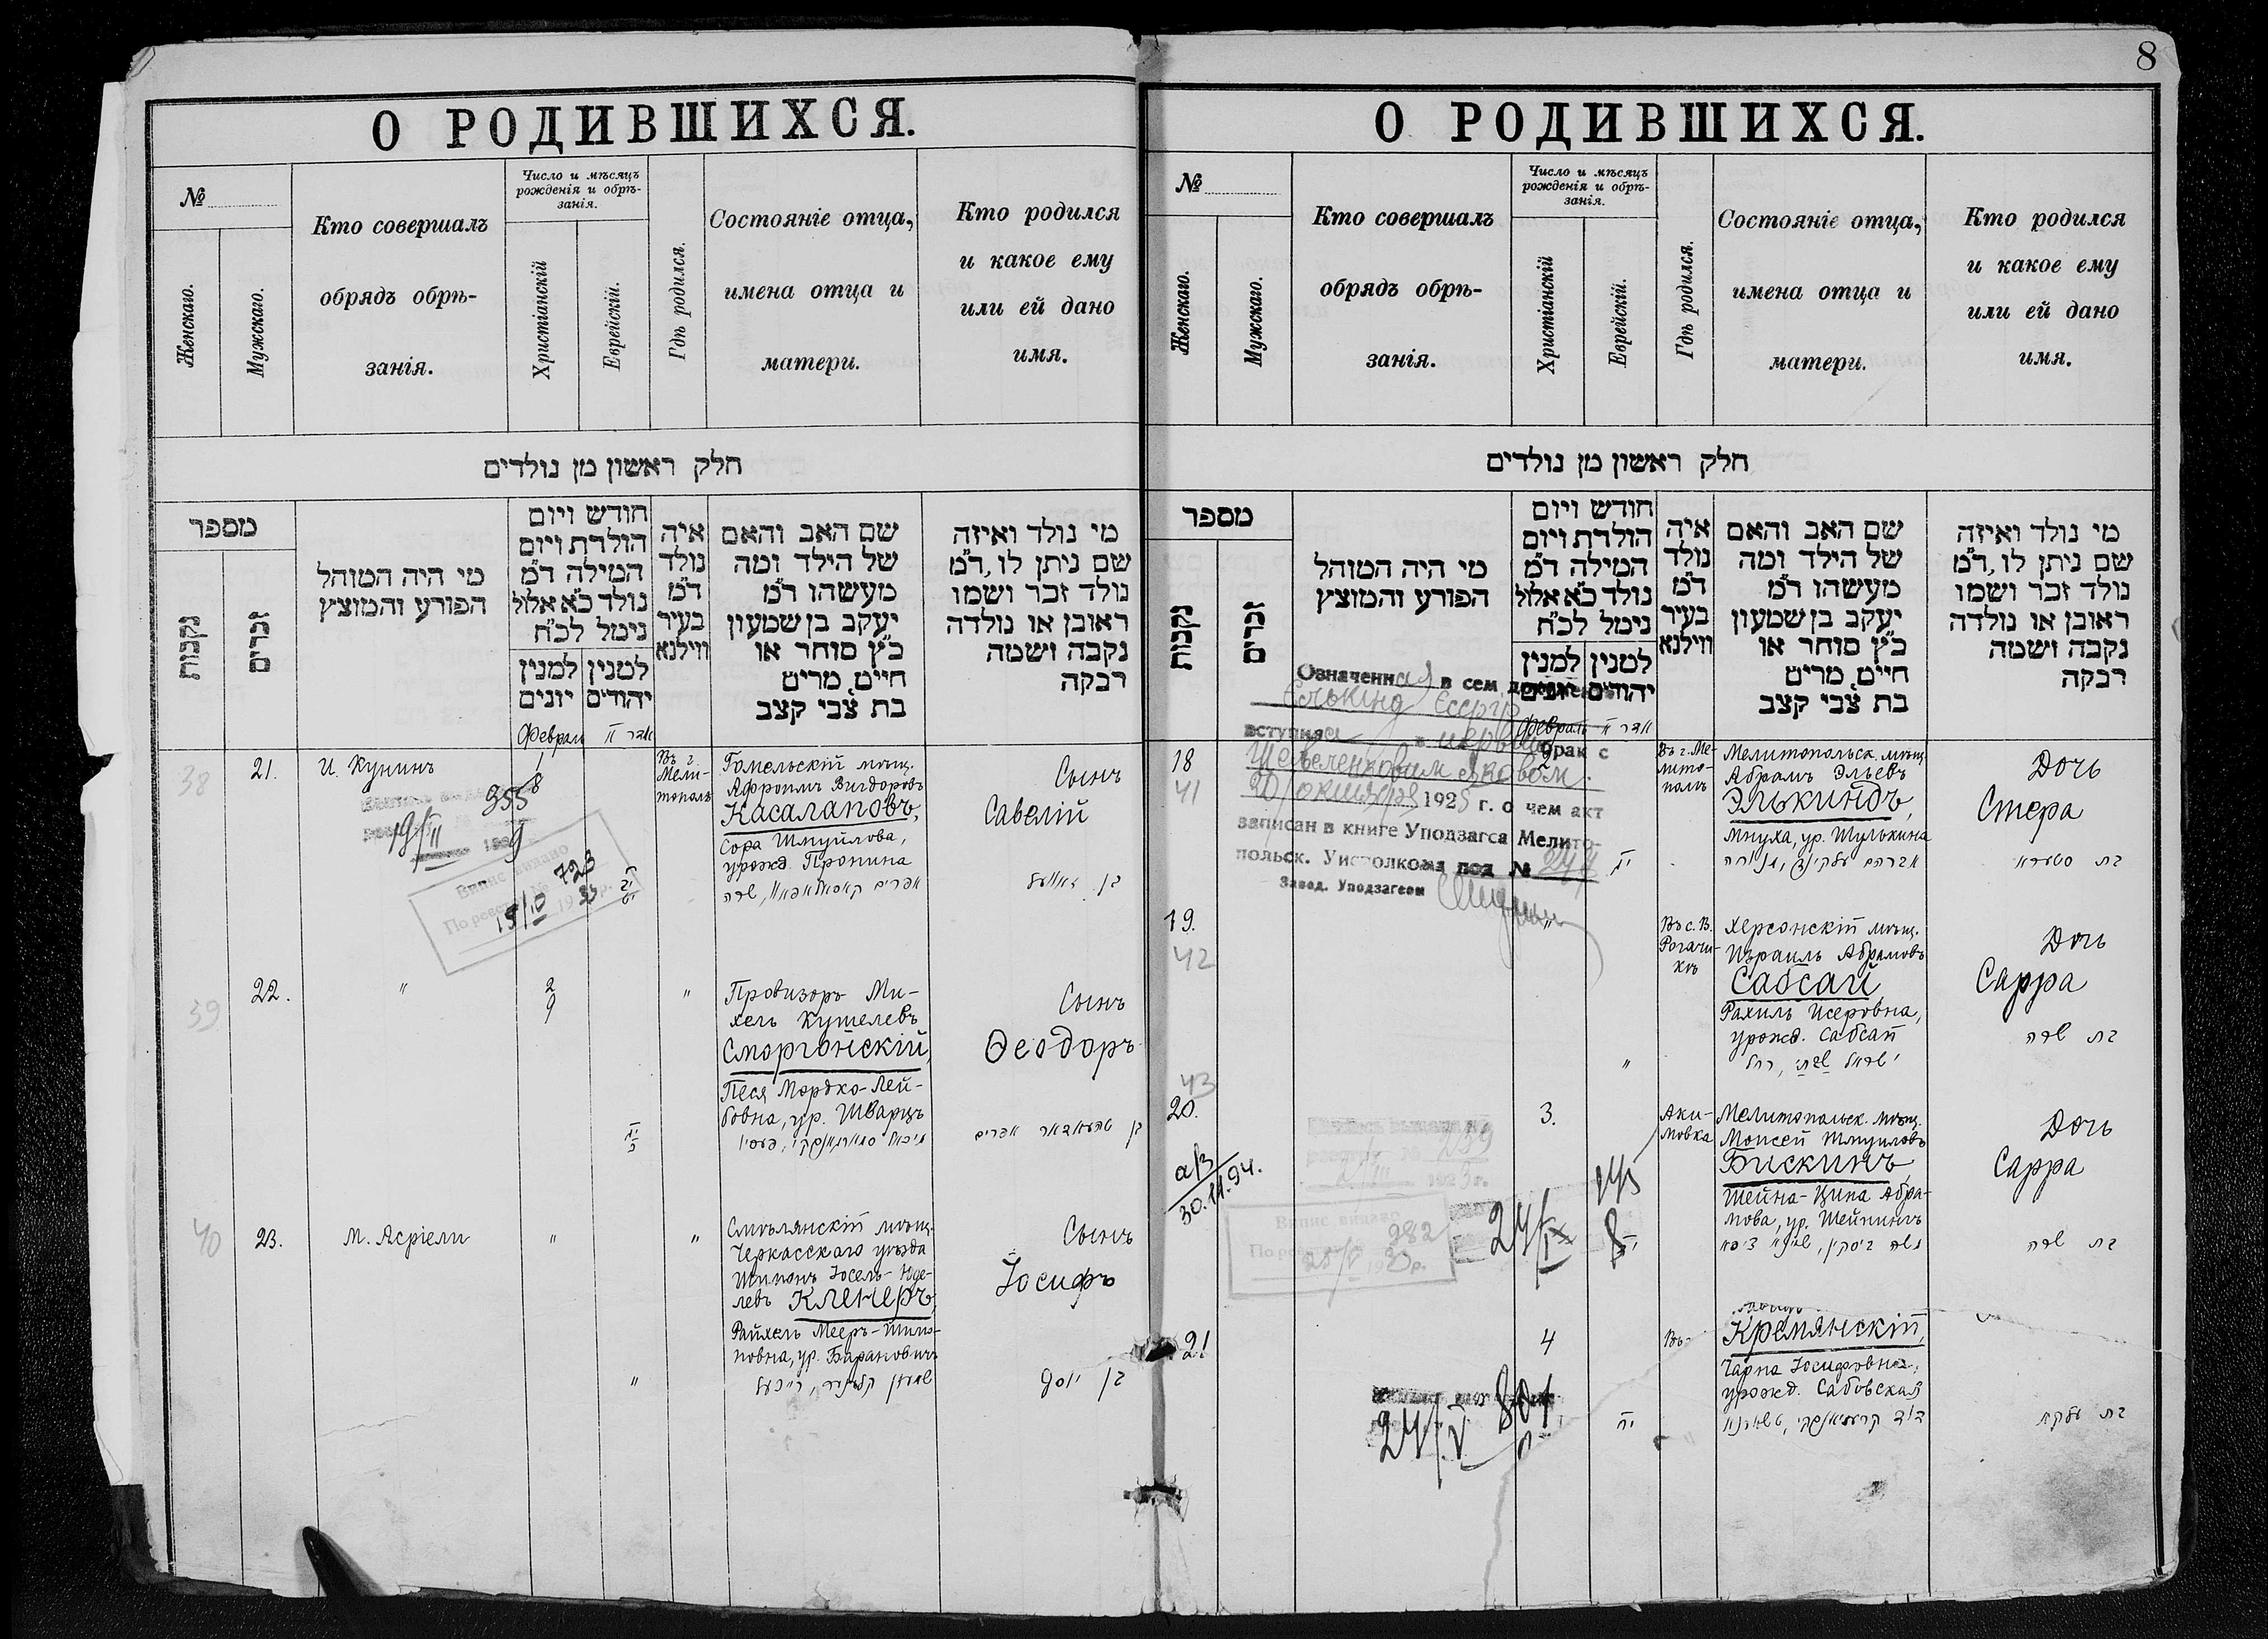 8
О РОДИВШИХСЯ.
№
Женскаго.
Мужскаго.
Кто совершалъ
обрядъ обрѣ-
занія.
Число и мѣсяцъ
рожденія и обрѣ-
занія.
Христіанскій
Еврейскій.
Гдѣ родился.
Состояніе отца,
имена отца и
матери.
Кто родился
и какое ему
или ей дано
имя.
חלק ראשון מן נולדים
מספר
נקבות
זכרים
מי היה המוהל
הפורע והמוצץ
חודש ויום
הולדת ויום
המילה ד״מ
נולד כ״א אלול
נימל לכ״ח
למנין יונים
למנין יהודים
איה
נולד
ד״מ
בעיר
ווילנא
שם האב והאם
של הילד ומה
מעשהו ד״מ
יעקב בן שמעון
כ״ץ סוחר או
חייט, מרים
בת צבי קצב
מי נולד ואיזה
שם ניתן לו, ד״מ
נולד זכר ושמו
ראובן או נולדה
נקבה ושמה
רבקה
Февраль
אדר II
38
21.
И. Кунинъ
1
8
Въ г.
Мели-
тополь
Гомельскій мѣщ.
Афроимъ Вигдоровъ
Касалаповъ,
Сора Шмуйлова,
урожд. Пронина
Сынъ
Савелій
355
19/II
Випис видано
По реєстру № 723
15/10 193 р.
39
22.
"
2
9
"
Провизоръ Ми-
хель Кушелевъ
Сморгонскій,
Песя Мордко-Лей-
бовна, ур. Шварцъ
Сынъ
Ѳеодоръ
40
23.
М. Асріели
"
"
Смѣлянскій мѣщ.
Черкасскаго уѣзда
Шимонъ Іосель-Юде-
левъ Клейнеръ,
Райхель Мееръ-Шимо-
новна, ур. Баранович
Сынъ
Іосифъ
"
בן יוסף
О РОДИВШИХСЯ.
№
Женскаго.
Мужскаго.
Кто совершалъ
обрядъ обрѣ-
занія.
Число и мѣсяцъ
рожденія и обрѣ-
занія.
Христіанскій
Еврейскій.
Гдѣ родился.
Состояніе отца,
имена отца и
матери.
Кто родился
и какое ему
или ей дано
имя.
חלק ראשון מן נולדים
מספר
נקבות
זכרים
מי היה המוהל
הפורע והמוצץ
חודש ויום
הולדת ויום
המילה ד״מ
נולד כ״א אלול
נימל לכ״ח
למנין
למנין יהודים
איה
נולד
ד״מ
בעיר
ווילנא
שם האב והאם
של הילד ומה
מעשהו ד״מ
יעקב בן שמעון
כ״ץ סוחר או
חייט, מרים
בת צבי קצב
מי נולד ואיזה
שם ניתן לו, ד״מ
נולד זכר ושמו
ראובן או נולדה
נקבה ושמה
רבקה
Февраль
אדר II
Означенная в сем
Елькинд
вступила в первый брак с
Шевеленковим Яковом.
20/октября 1925 г. о чем акт
записан в книге Уподзагса Мелито-
польск. Уисполкома под № 244
Завед. Уподзагсом
18
41
Въ г. Ме-
лито-
поль
Мелитопольск. мѣщ.
Абрамъ Эльевъ
Элькиндъ,
Мнуха, ур. Шулькина
Дочь
Стера
19.
42
"
Въ с. В.
Рогачи-
къ
Херсонскій мѣщ.
Израиль Абрамовъ
Сабсай
Рахиль Исеровна,
урожд. Сабсай
Дочь
Сарра
בת שרה
"
43
20.
3.
Аки-
мовка
Мелитопольск. мѣщ.
Моисей Шмуиловъ
Бискинъ
Шейна-Ципа Абра-
мова, ур. Шейнинъ
Дочь
Сарра
בת שרה
30.11.94.
239
Випис видано
По реєстру 282
25/V 193 р.
24/IX
21
4
Въ
Кремянскій,
Чарна Іосифовна,
урожд. Сабовская
24/V.
801